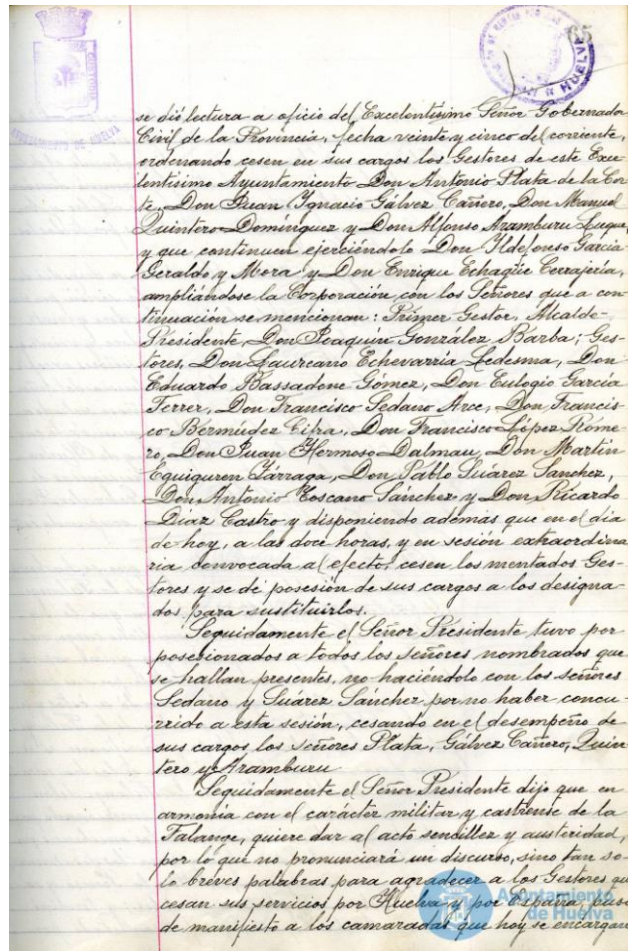 65
AYUNTAMIENTO DE HUELVA
HUELVA
se dió lectura a oficio del Excelentísimo Señor Gobernador
Civil de la Provincia, fecha veinte y cinco del corriente,
ordenando cesen en sus cargos los Gestores de este Exce-
lentísimo Ayuntamiento Don Antonio Plata de la Cor-
te, Don Juan Ygnacio Gálvez Cañero, Don Manuel
Quintero Domínguez y Don Alfonso Aramburu Luque,
y que continuen ejerciéndolo Don Yldefonso García
Geraldo y Mora y Don Enrique Echagüe Cerrajería,
ampliándose la Corporación con los Señores que a con-
tinuación se mencionan: Primer Gestor, Alcalde-
Presidente, Don Joaquín González Barba; Ges-
tores, Don Laureano Echevarria Ledesma, Don
Eduardo Bassadone Gómez, Don Eulogio García
Ferrer, Don Francisco Sedano Arce, Don Francis-
co Bermúdez Cifra, Don Francisco López Rome-
ro, Don Juan Hermoso Dalmau, Don Martín
Equiguren Lárraga, Don Pablo Suárez Sanchez,
Don Antonio Toscano Sánchez y Don Ricardo
Díaz Castro y disponiendo además que en el día
de hoy, a las doce horas, y en sesión extraordina
ria convocada al efecto, cesen los mentados Ges-
tores y se dé posesión de sus cargos a los designa-
dos para sustituirlos.
Seguidamente el Señor Presidente tuvo por
posesionados a todos los señores nombrados que
se hallan presentes, no haciéndolo con los señores
Sedano y Suárez Sánchez por no haber concu-
rrido a esta sesión, cesando en el desempeño de
sus cargos los señores Plata, Gálvez Cañero, Quin-
tero y Aramburu
Seguidamente el Señor Presidente dijo que en
armonía con el carácter militar y castrense de la
Falange, quiere dar al acto sencillez y austeridad,
por lo que no pronunciará un discurso, sino tan so-
lo breves palabras para agradecer a los Gestores que
cesan sus servicios por Huelva y por España, puso
de manifiesto a los camaradas que hoy se encargan
Ayuntamiento
de Huelva